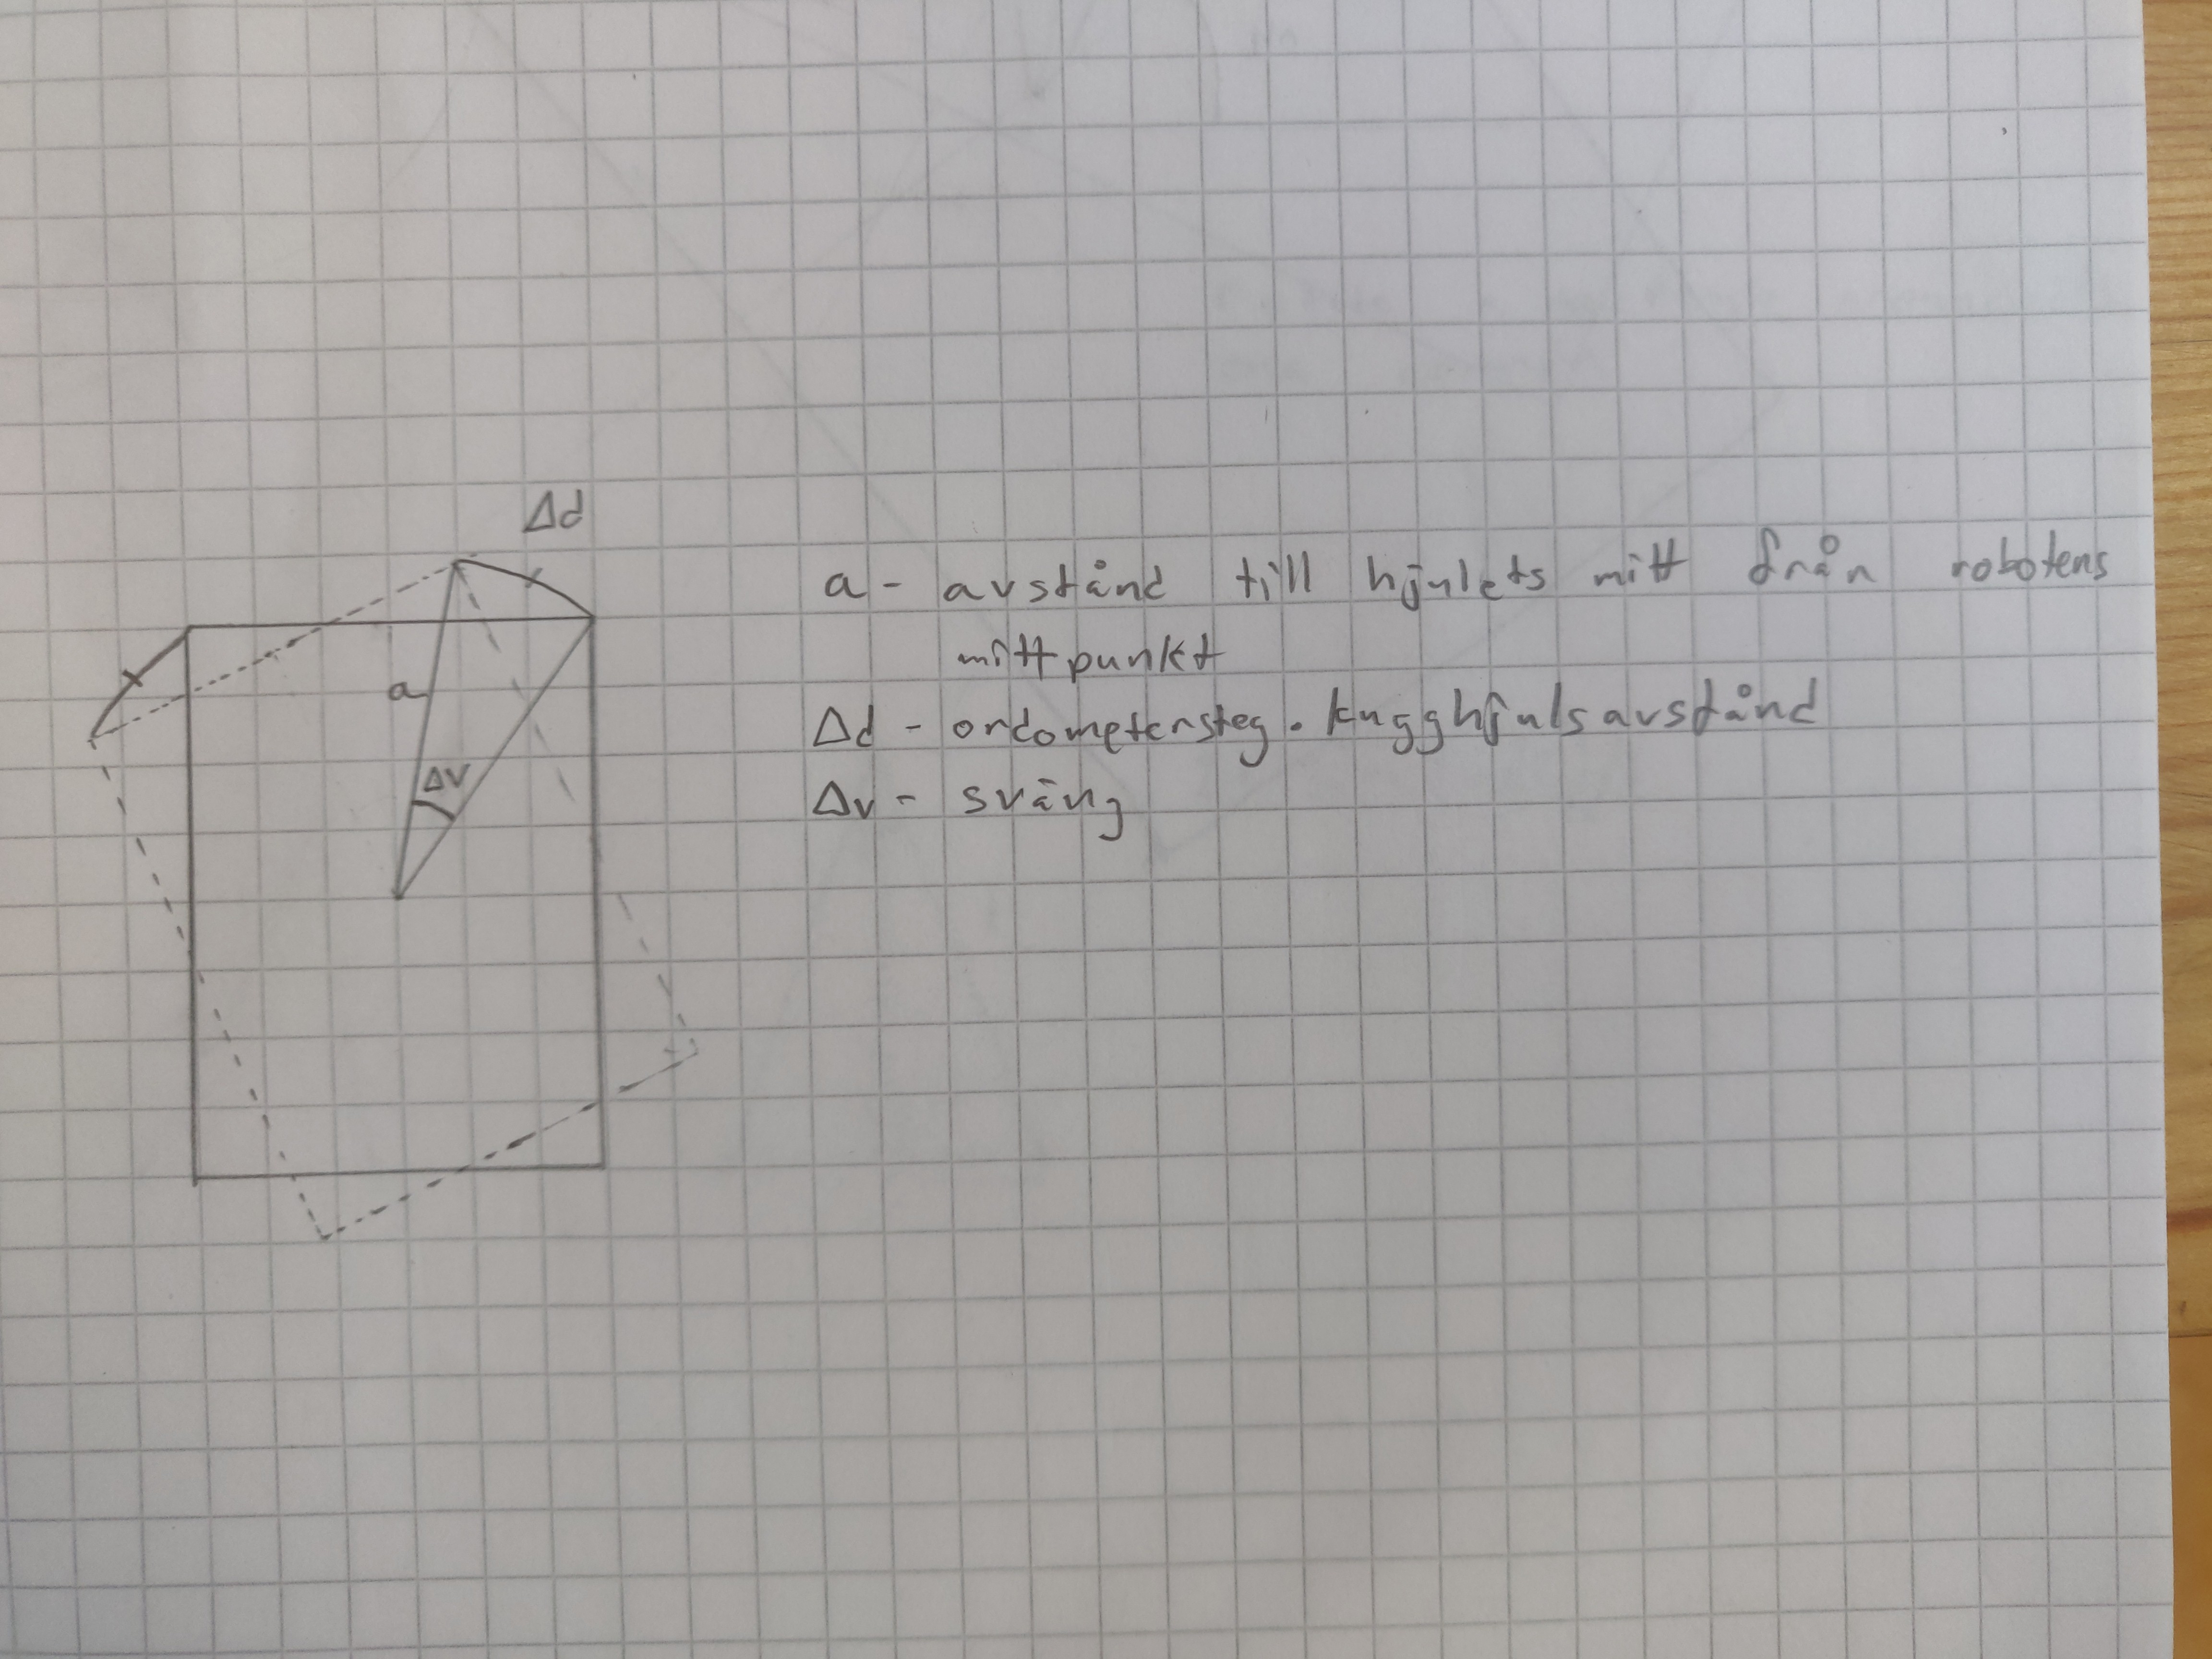 Δd
a - avstånd till hjulets mitt från robotens
mittpunkt
a
Δd - ondometersteg · kugghjulsavstånd
Δv
Δv - sväng